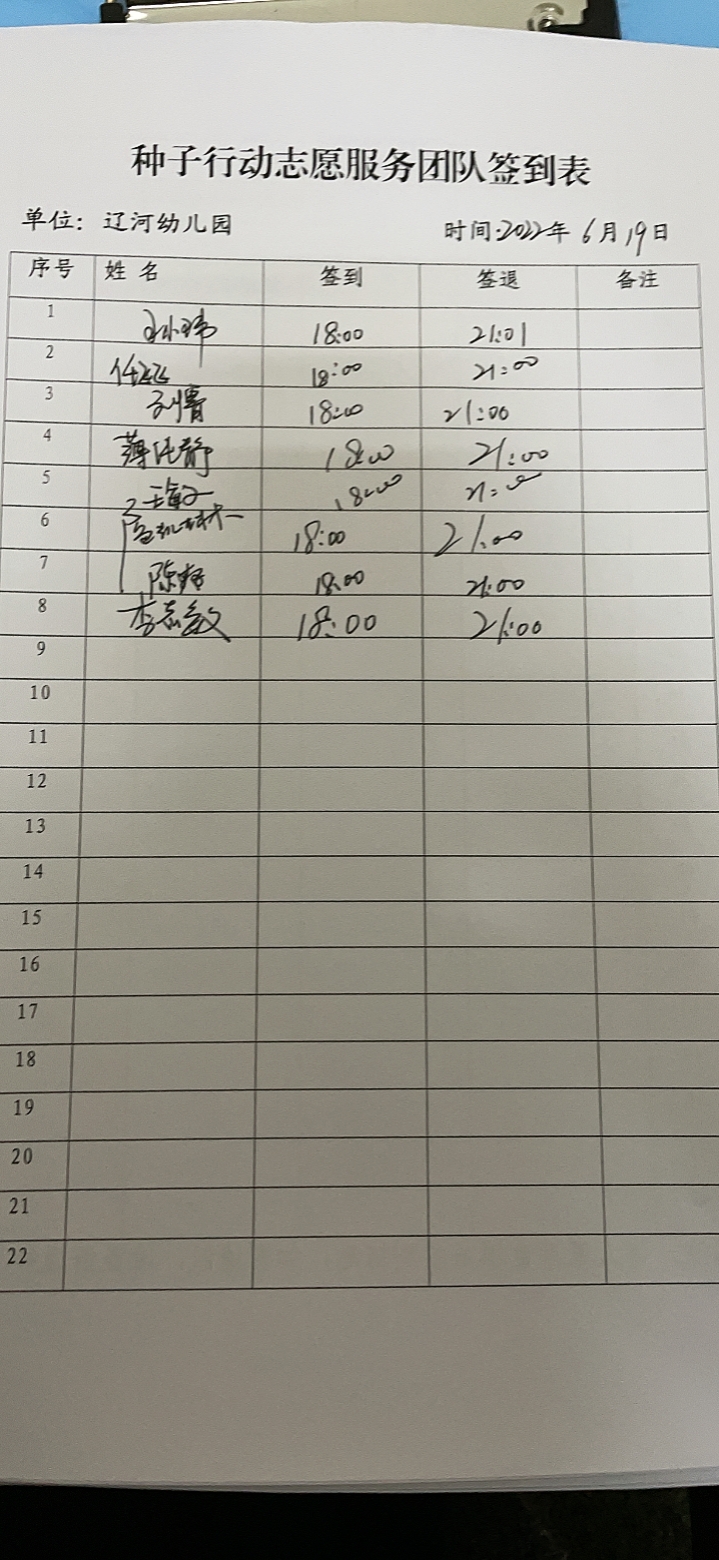 种子行动志愿服务团队签到表
单位：辽河幼儿园 时间:2022年 6月19日
序号 姓名 签到 签退 备注
1 18:00 21:01
2 18:00 21:00
3 18:00 21:00
4 薄 静 18:00 21:00
5 王 18:00 21:00
6 18:00 21:00
7 陈 18:00 21:00
8 李志敏 18:00 21:00
9
10
11
12
13
14
15
16
17
18
19
20
21
22